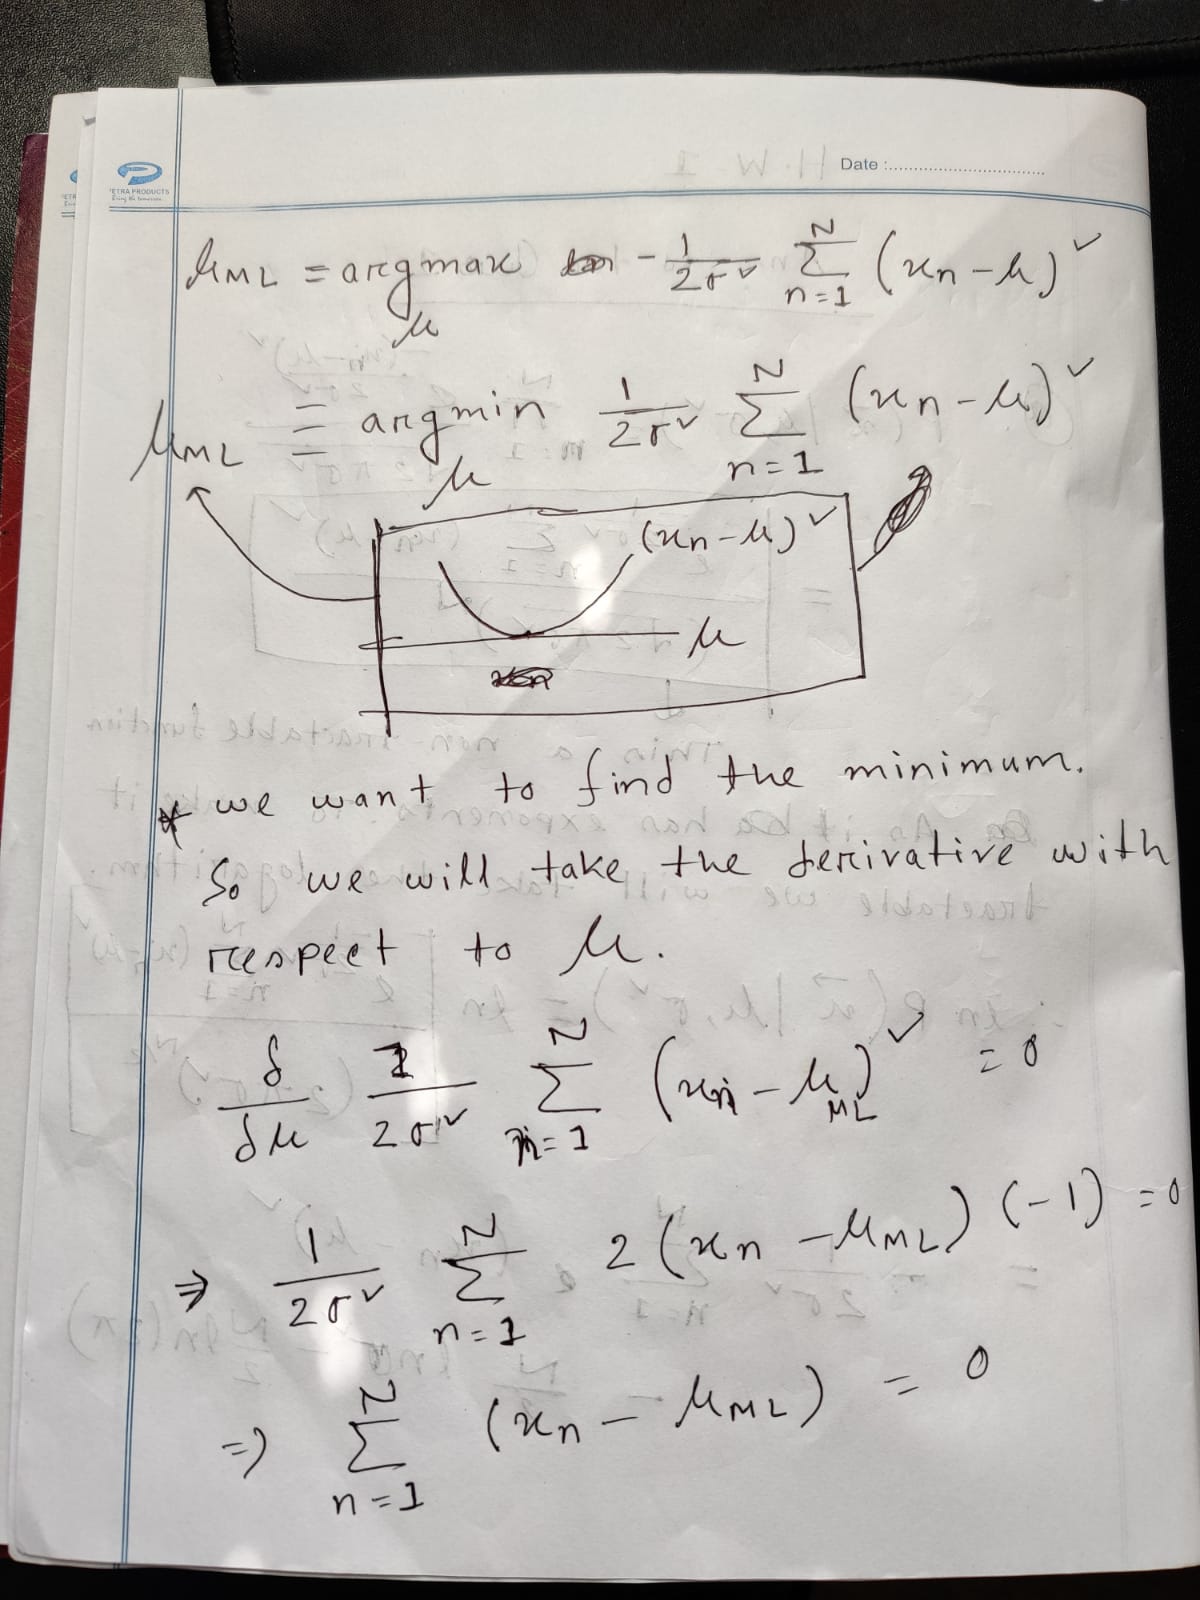 PETRA PRODUCTS
Date :
μ_ML = argmax_μ - 1/2σ² Σ_{n=1}^{N} (xn - μ)²
μ_ML = argmin_μ 1/2σ² Σ_{n=1}^{N} (xn - μ)²
(xn - μ)²
μ
* we want to find the minimum.
So we will take the derivative with
respect to μ.
δ/δμ 1/2σ² Σ_{n=1}^{N} (xn - μ_ML)² = 0
⇒ 1/2σ² Σ_{n=1}^{N} 2(xn - μ_ML)(-1) = 0
⇒ Σ_{n=1}^{N} (xn - μ_ML) = 0